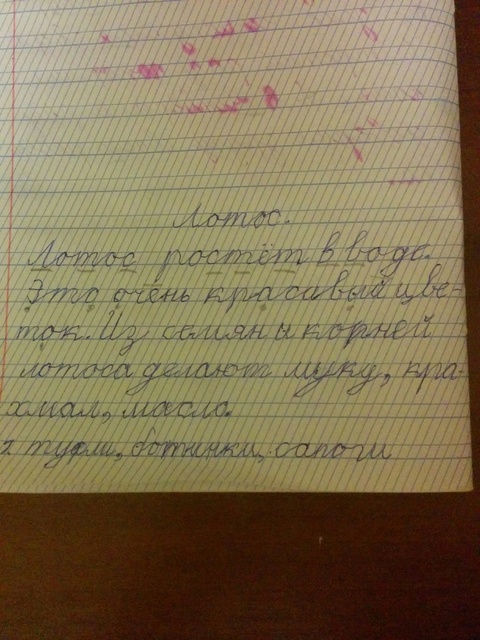 Лотос.
Лотос ростёт в воде.
Это очень красавый цве-
ток. Из семян и корней
лотоса делают муку, кра-
хмал, масло.
туфли, ботинки, сапоги